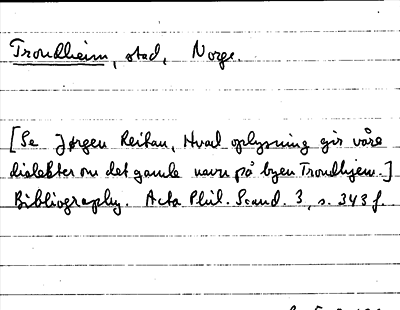 Trondheim, stad, Norge.
[Se Jørgen Reitan, Hvad oplysning gir våre
dialekter om det gamle navn på byen Trondhjem.]
Bibliography. Acta Phil. Scand. 3, s. 343 f.